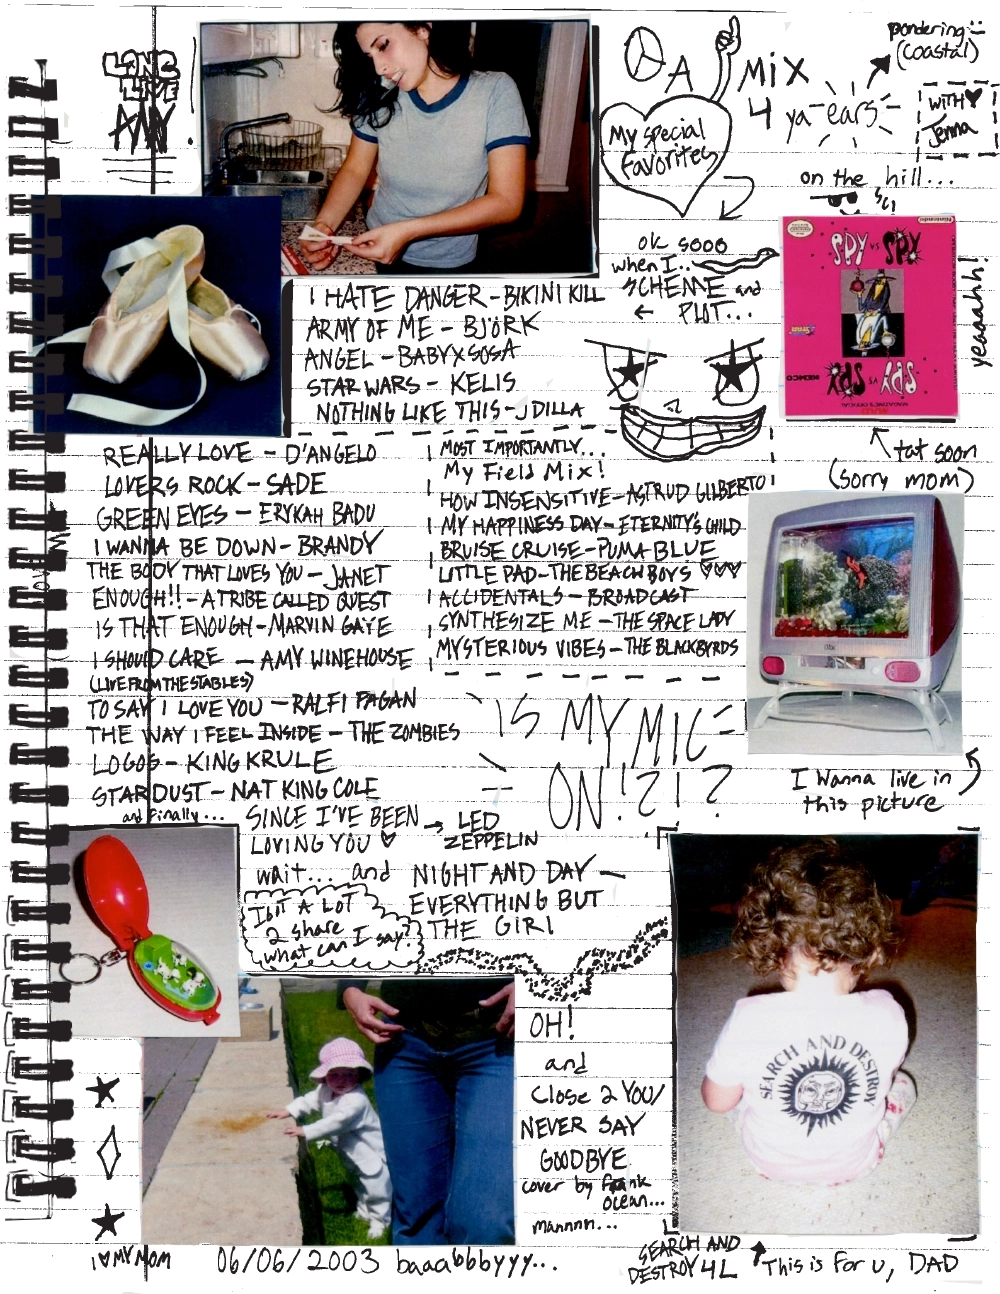 LONG
LIVE
AMY!
A MIX
4 ya ears
My special
favorites
pondering
(coastal)
WITH
Jenna
on the hill...
ok sooo
when I..
SCHEME and
PLOT...
yeaaahh!
SPY vs SPY
SPY vs SPY
KEMCO
tat soon
(sorry mom)
I HATE DANGER - BIKINI KILL
ARMY OF ME - BJÖRK
ANGEL - BABYXSOSA
STAR WARS - KELIS
NOTHING LIKE THIS - J DILLA
REALLY LOVE - D'ANGELO
LOVERS ROCK - SADE
GREEN EYES - ERYKAH BADU
I WANNA BE DOWN - BRANDY
THE BODY THAT LOVES YOU - JANET
ENOUGH!! - A TRIBE CALLED QUEST
IS THAT ENOUGH - MARVIN GAYE
I SHOULD CARE - AMY WINEHOUSE
(LIVE FROM THE STABLES)
TO SAY I LOVE YOU - RALFI PAGAN
THE WAY I FEEL INSIDE - THE ZOMBIES
LOGOS - KING KRULE
STARDUST - NAT KING COLE
and finally...
SINCE I'VE BEEN
LOVING YOU
→ LED
ZEPPELIN
wait... and
NIGHT AND DAY -
EVERYTHING BUT
THE GIRL
I GOT A LOT
2 share
what can I say?
MOST IMPORTANTLY...
My Field Mix!
HOW INSENSITIVE - ASTRUD GILBERTO
MY HAPPINESS DAY - ETERNITY'S CHILD
BRUISE CRUISE - PUMA BLUE
LITTLE PAD - THE BEACH BOYS ♡♡♡
ACCIDENTALS - BROADCAST
SYNTHESIZE ME - THE SPACE LADY
MYSTERIOUS VIBES - THE BLACKBYRDS
IS MY MIC
ON!?!?
I wanna live in
this picture
OH!
and
Close 2 YOU/
NEVER SAY
GOODBYE
cover by frank
ocean...
mannnn...
SEARCH AND DESTROY
I ♥ MY MOM
06/06/2003 baaabbbyyy...
SEARCH AND
DESTROY 4L
This is for u, DAD